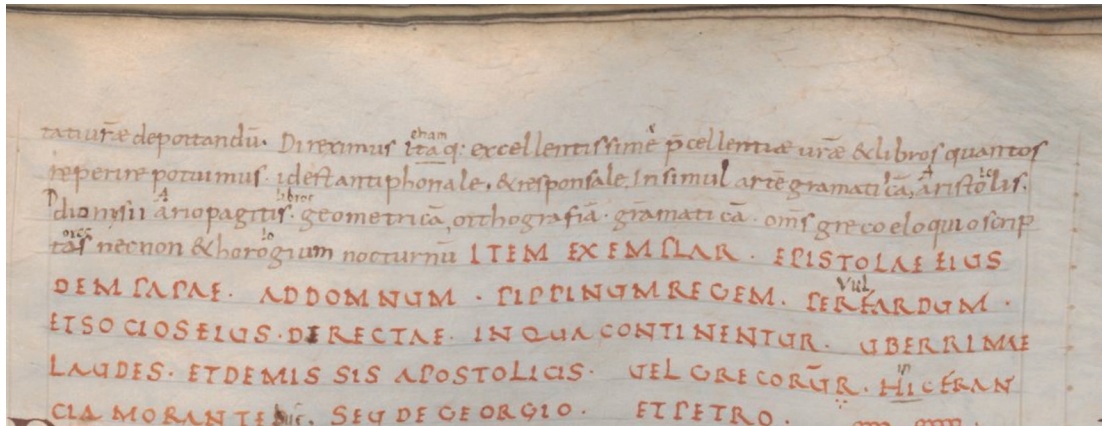 tati urāe deportandū. Direximus itaq: excellentissime p̄cellentiae urāe & libros quantos
reperire potuimus. id est antiphonale. & responsale. In simul artē gramaticā, aristotolis.
dionysii ariopagitis. geometricā, orthografiā. grāmaticā. om̄s greco eloquio scrip
tas necnon & horologium nocturnū ITEM EXEMPLAR. EPISTOLAE EIUS
DEM PAPAE. AD DOMNUM. PIPPINUM REGEM. PER UULFARDUM.
ET SOCIOS EIUS. DIRECTAE. IN QUA CONTINENTUR. UBERRIMAE
LAUDES. ET DE MISSIS APOSTOLICIS. UEL GRECORŪ. HIC IN FRAN
CIA MORANTEBUS. SEU DE GEORGIO. ET PETRO.